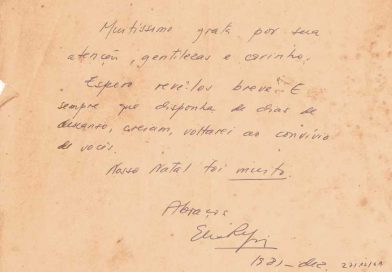 Muitissimo grata por sua
atenção, gentilezas e carinho.
Espero revê-los breve. E
sempre que disponha de dias de
descanso, creiam, voltarei ao convívio
de vocês.
Nosso Natal foi muito.
Abraços